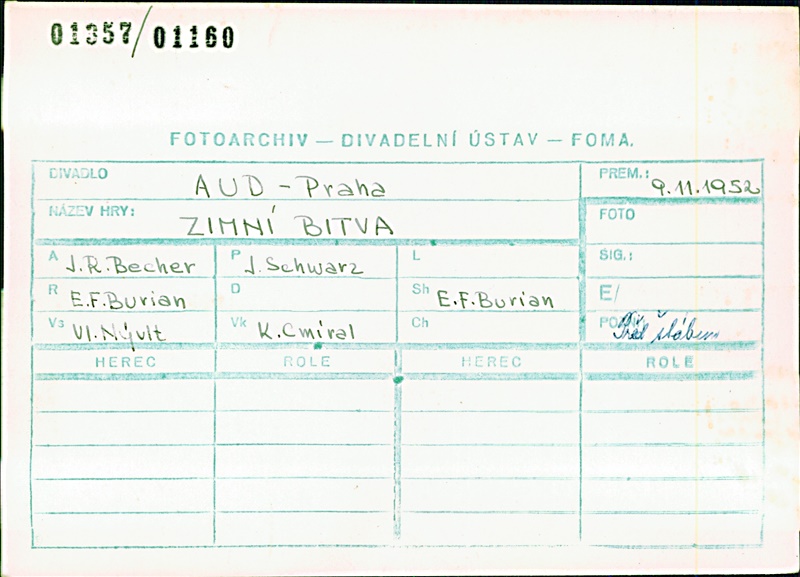 01357/01160
FOTOARCHIV — DIVADELNÍ ÚSTAV — FOMA.
DIVADLO AUD - Praha PREM.: 9.11.1952
NÁZEV HRY: ZIMNÍ BITVA FOTO
A J.R.Becher P J.Schwarz L SIG.:
R E.F.Burian D Sh E.F.Burian E/
Vs Vl.Nývlt Vk K.Cmíral Ch štábem
HEREC ROLE HEREC ROLE